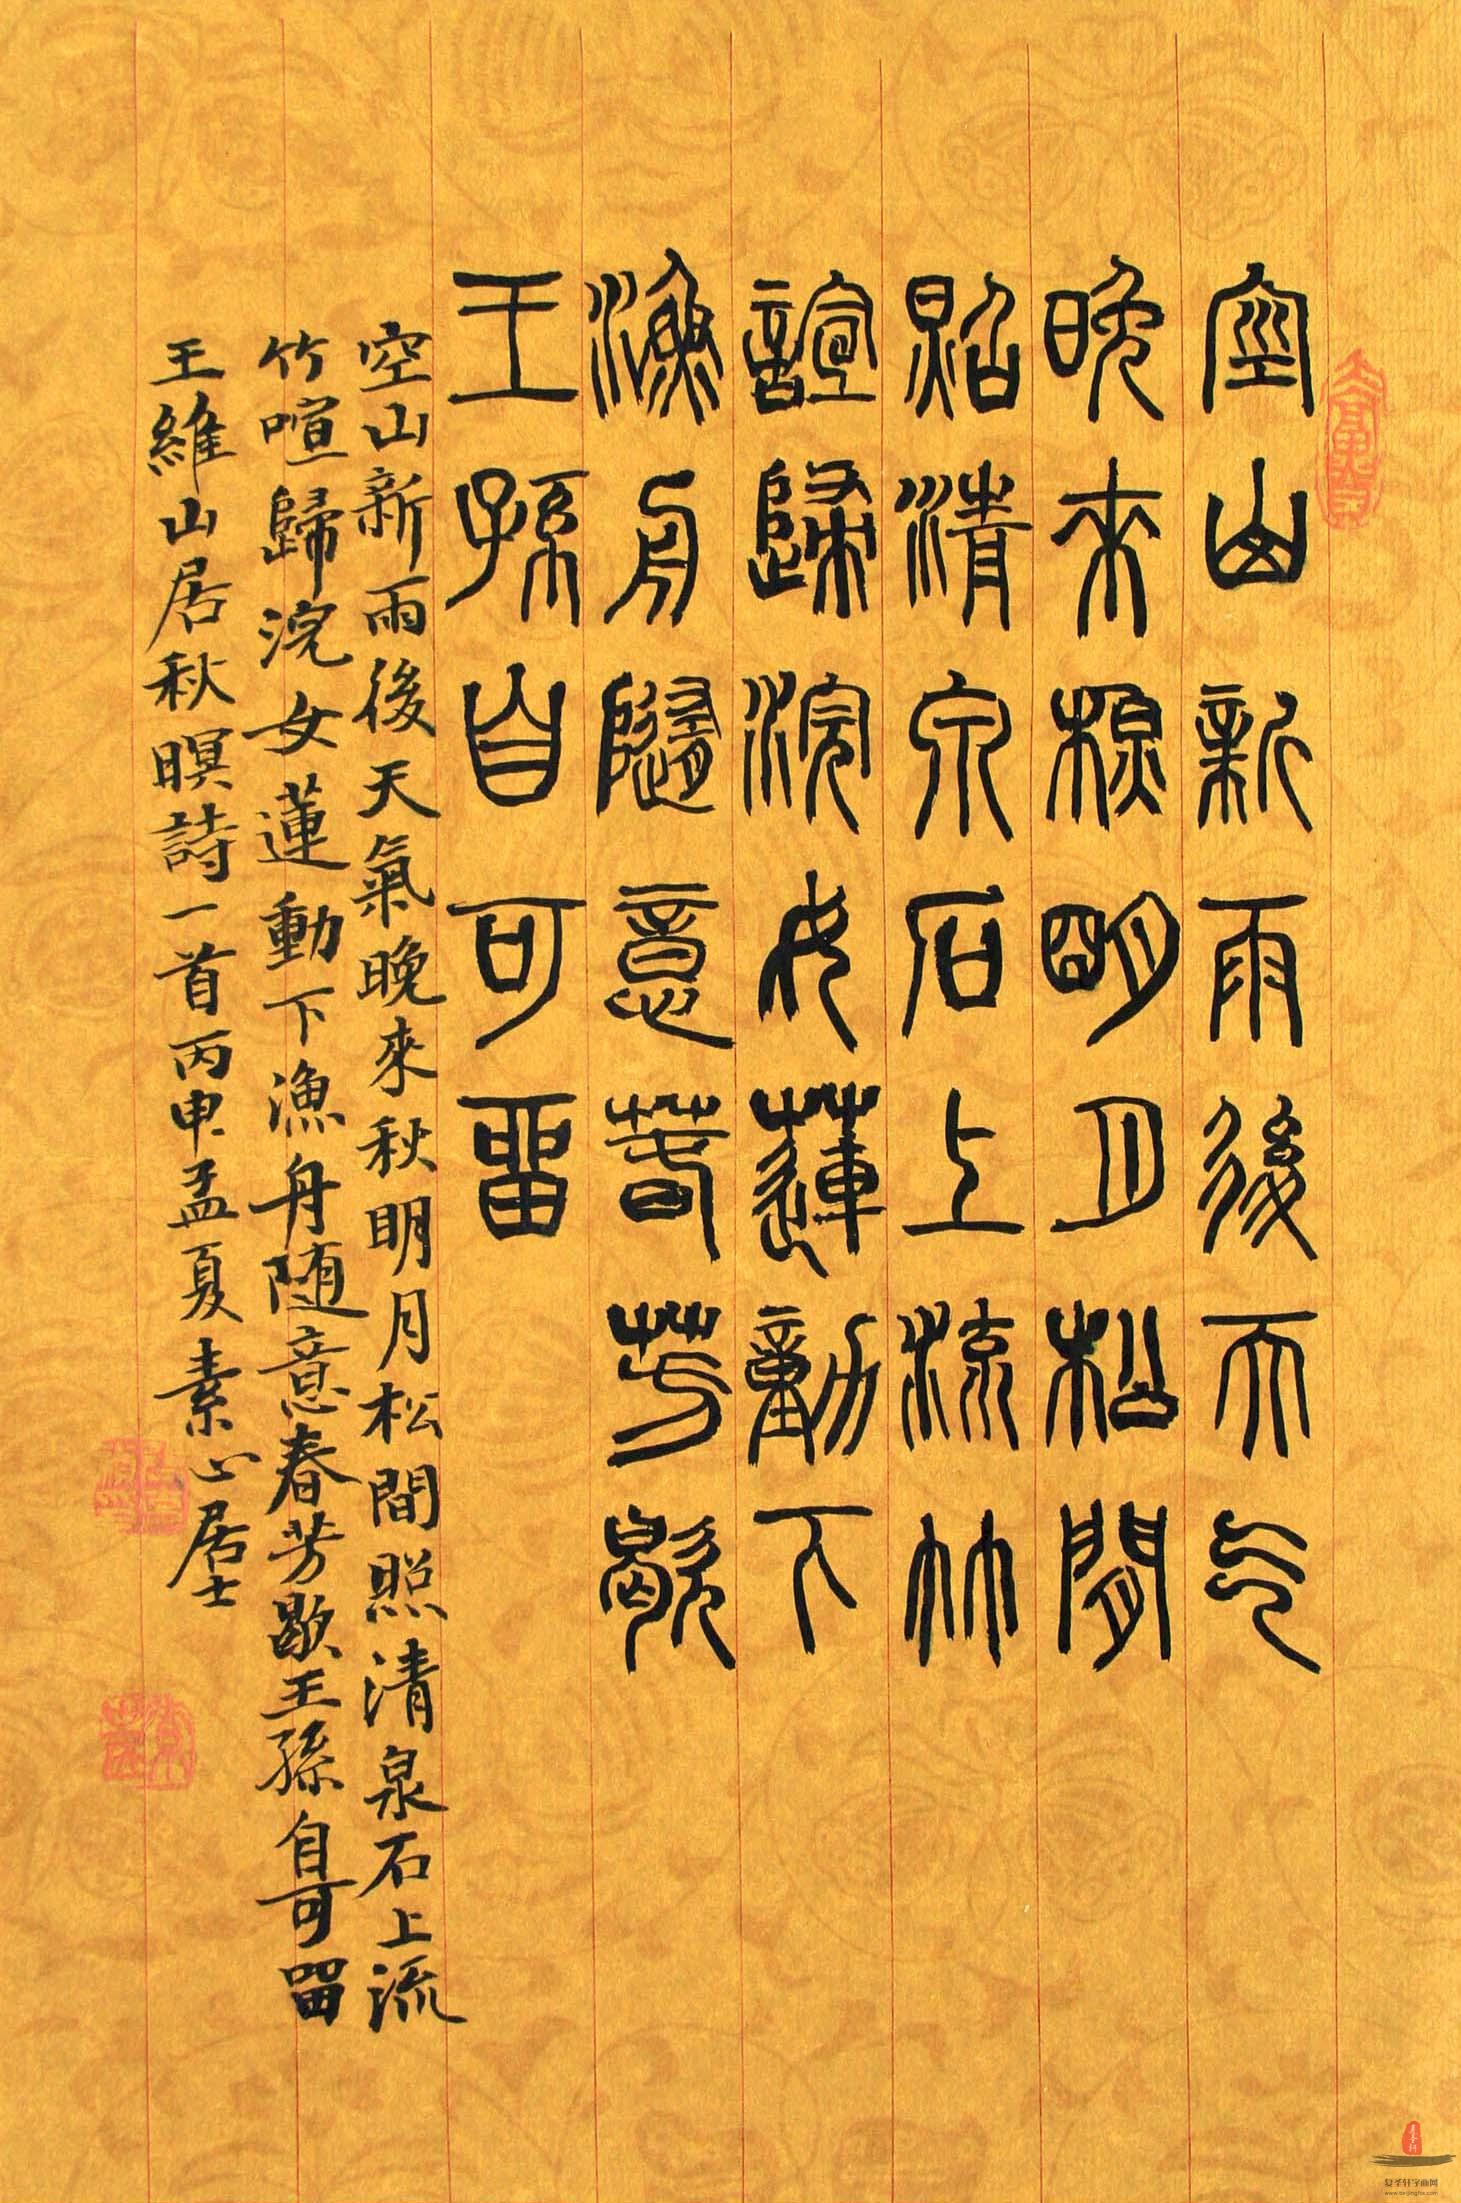 空山新雨後天气
晚来秋明月松間
照清泉石上流竹
諠歸浣女蓮動下
漁舟隨意春芳歇
王孫自可留
空山新雨後天氣晚來秋明月松間照清泉石上流
竹喧歸浣女蓮動下漁舟随意春芳歇王孫自可留
王維山居秋暝詩一首丙申孟夏素心居士